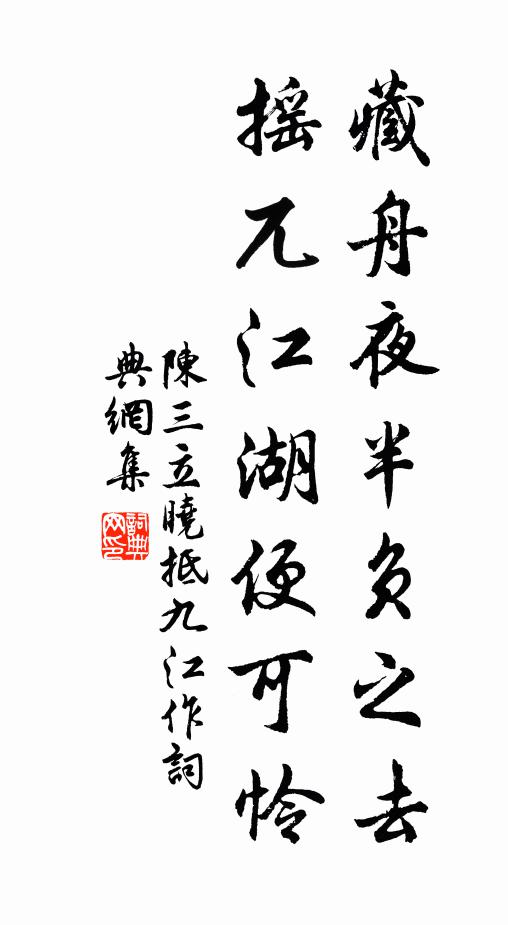 藏舟夜半负之去
摇兀江湖便可怜
陳三立曉抵九江作詞
典網集
詞典网印